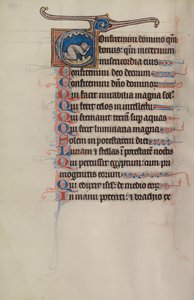 Confitemini domino qm̄
bonus: qm̄ in eternum
misericordia eius
Confitemini deo deorum
Confitemini dño dominoꝝ
Qui facit mirabilia magna sol̃
Qui fecit celos in intellectu
Qui firmauit terrā sup aquas
Qui fecit luminaria magna
Solem in potestatem diei
Lunam ⁊ stellas ī p̄testatē noctis
Qui percussit egyptum: cum pri
mogenitis eorum
Qui eduxit isrł: de medio eoꝝ
In manu potenti: ⁊ brachio ex